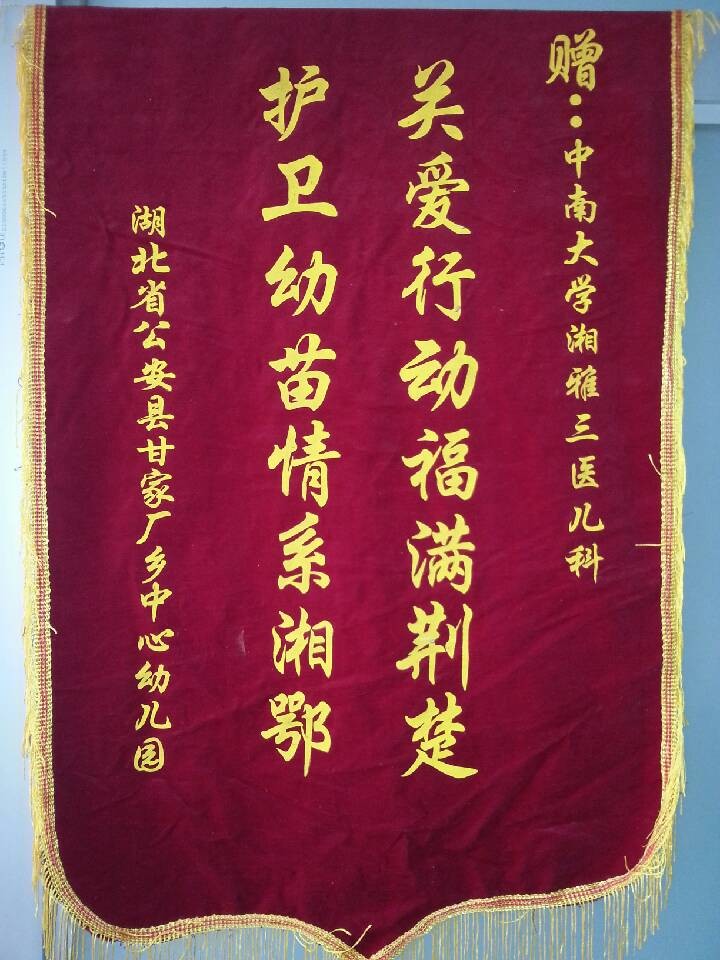 赠：中南大学湘雅三医儿科
关爱行动福满荆楚
护卫幼苗情系湘鄂
湖北省公安县甘家厂乡中心幼儿园